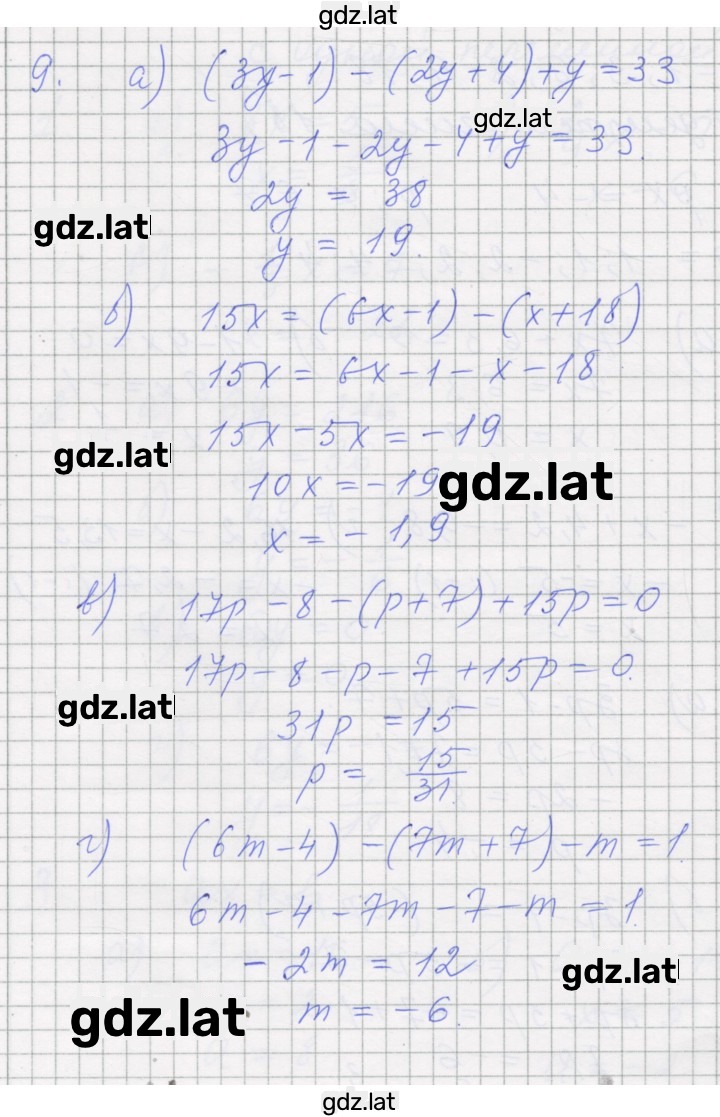 gdz.lat
9. а) (3y-1) - (2y+4) + y = 33
gdz.lat
3y - 1 - 2y - 4 + y = 33.
2y = 38
gdz.lat
y = 19.
б) 15x = (6x-1) - (x+18)
15x = 6x - 1 - x - 18
15x - 5x = -19
gdz.lat
10x = -19
gdz.lat
x = -1,9
в) 17p - 8 - (p+7) + 15p = 0
17p - 8 - p - 7 + 15p = 0.
gdz.lat
31p = 15
p = 15/31.
г) (6m-4) - (7m+7) - m = 1.
6m - 4 - 7m - 7 - m = 1.
- 2m = 12
gdz.lat
m = -6.
gdz.lat
gdz.lat